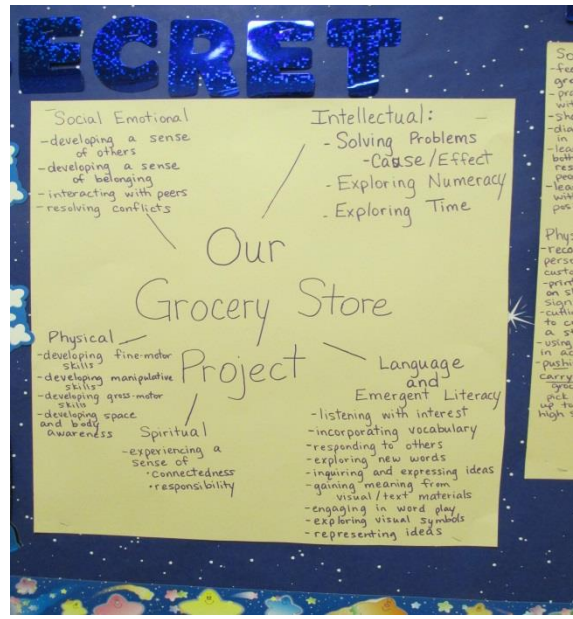 ECRET
Social Emotional
-developing a sense
of others
-developing a sense
of belonging
-interacting with peers
-resolving conflicts
Intellectual:
- Solving Problems
-Cause/Effect
- Exploring Numeracy
- Exploring Time
Our
Grocery Store
Project
Physical
-developing fine-motor
skills
-developing manipulative
skills
-developing gross-motor
skills
-developing space
and body
awareness
Spiritual
-experiencing a
sense of
•connectedness
•responsibility
Language
and
Emergent Literacy
-listening with interest
-incorporating vocabulary
-responding to others
-exploring new words
-inquiring and expressing ideas
-gaining meaning from
visual/text materials
-engaging in word play
-exploring visual symbols
-representing ideas